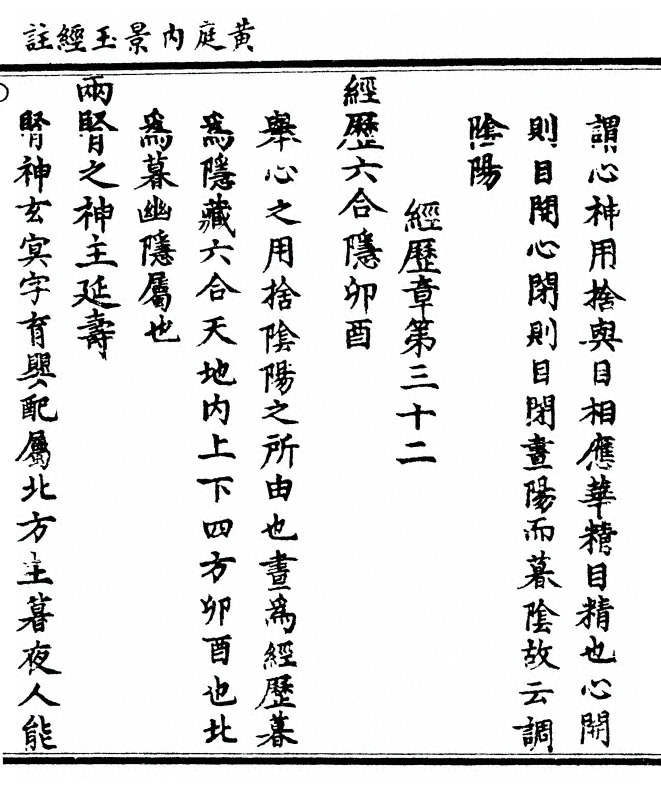 黃庭內景玉經註
謂心神用捨與目相應華精目精也心開
則目開心閉則目閉晝陽而暮陰故云調
陰陽
經歷章第三十二
經歷六合隱卯酉
舉心之用捨陰陽之所由也晝為經歷暮
為隱藏六合天地內上下四方卯酉也北
為暮幽隱屬也
兩腎之神主延壽
腎神玄㝠字育嬰配屬北方主暮夜人能